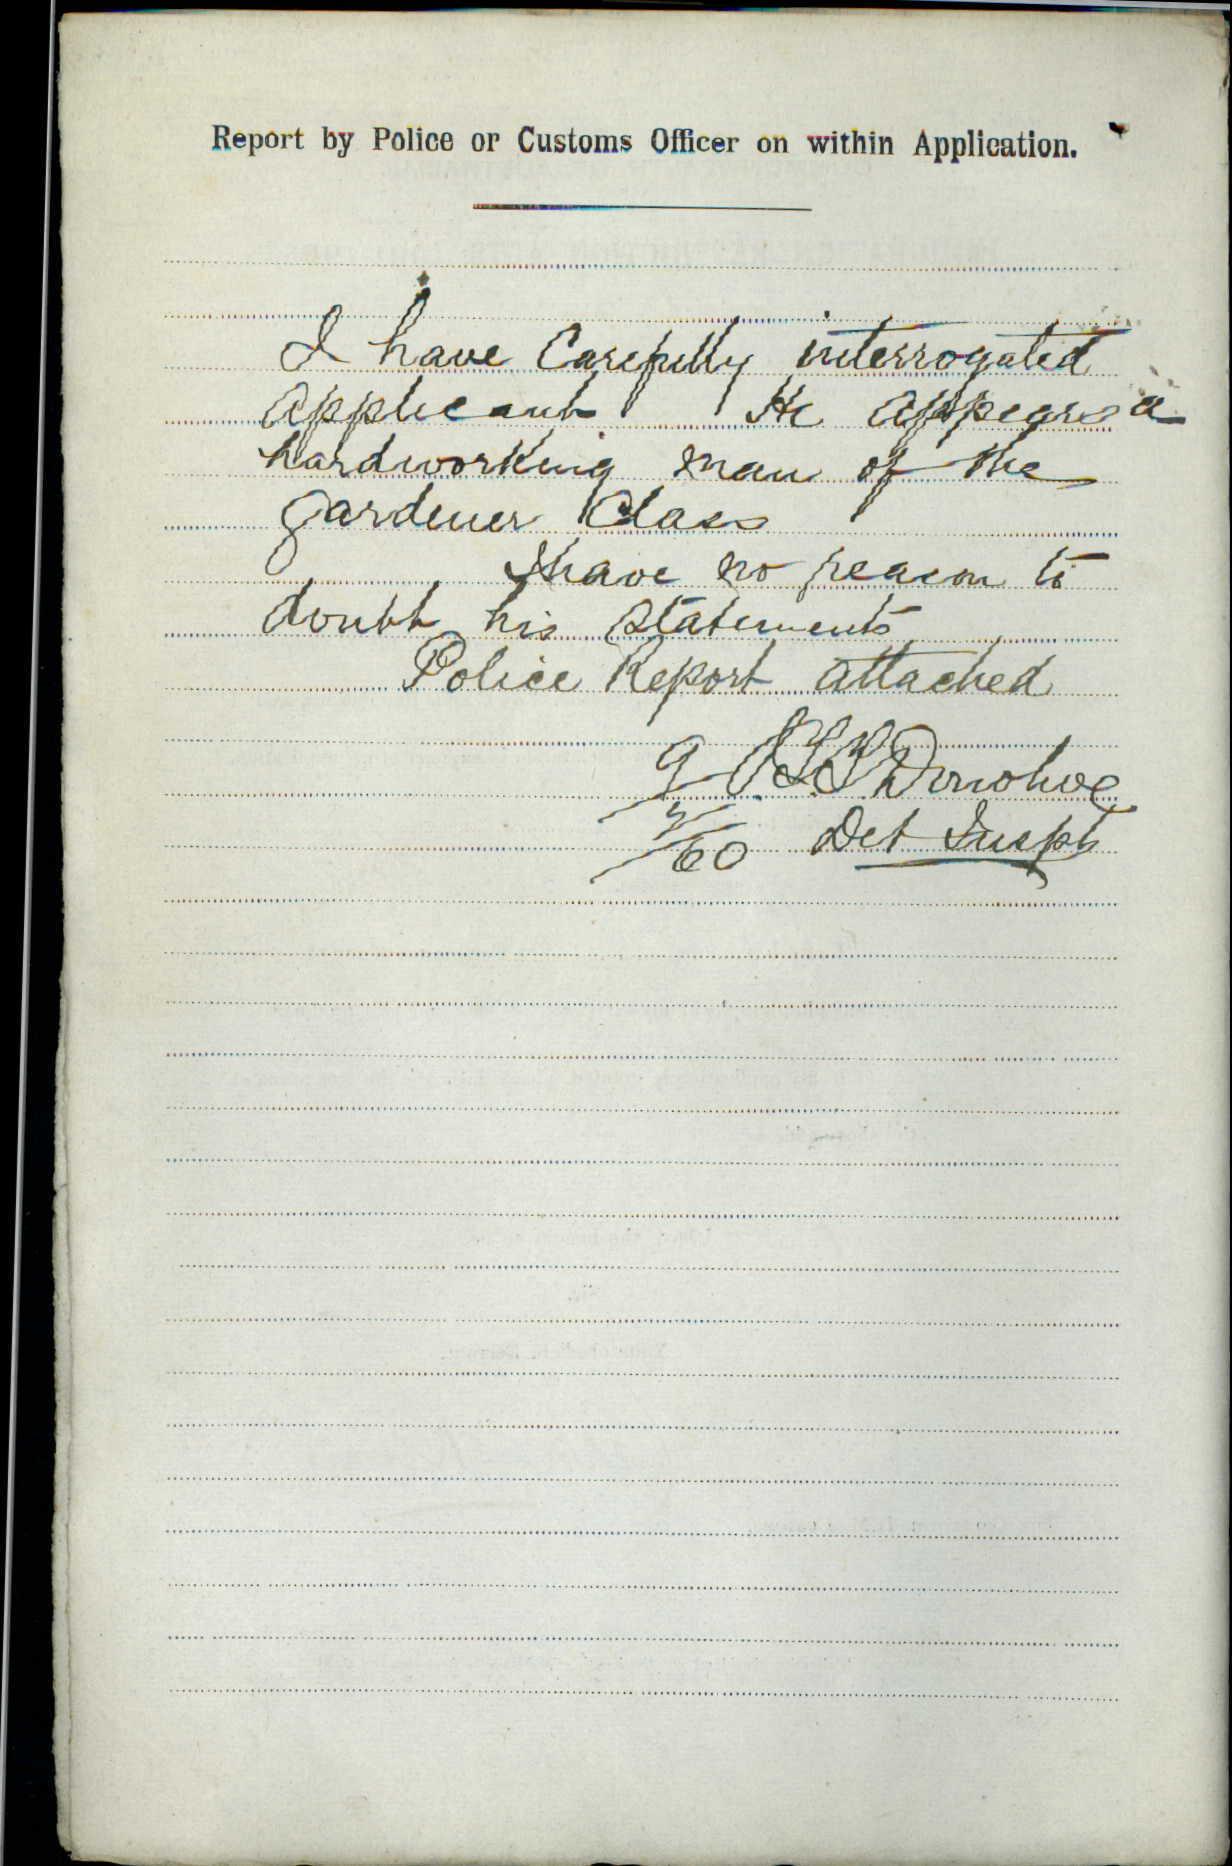 Report by Police or Customs Officer on within Application.
I have Carefully interrogated
Applicant He appears a
hardworking man of the
gardener Class
I have no reason to
doubt his statements
Police Report attached
9 Donohoe
Det Inspt